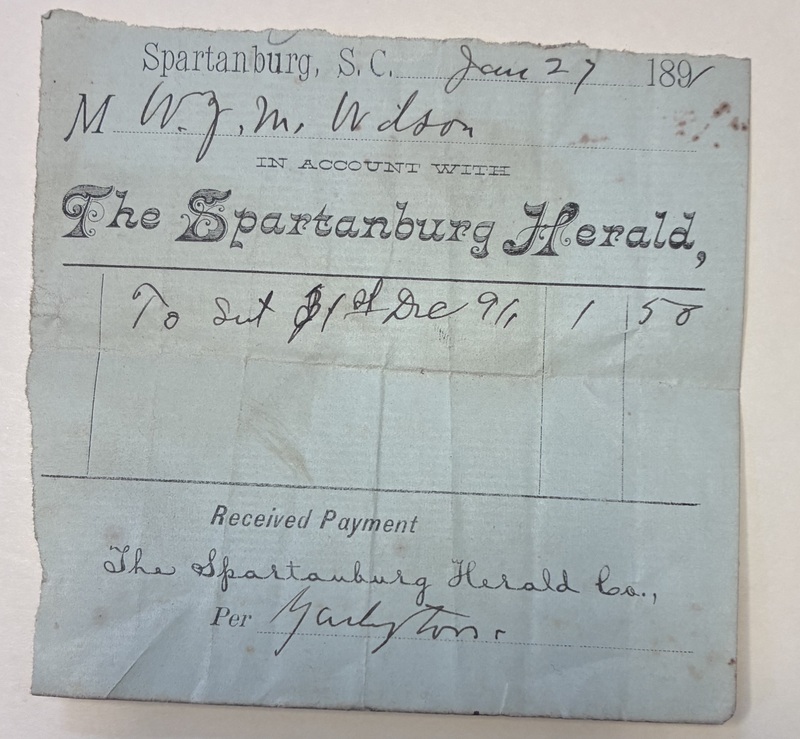 Spartanburg, S. C. Jan 27 1891
M W. J. M. Wilson
IN ACCOUNT WITH
The Spartanburg Herald,
To Sub 1st Dec 91, 1 50
Received Payment
The Spartanburg Herald Co.,
Per